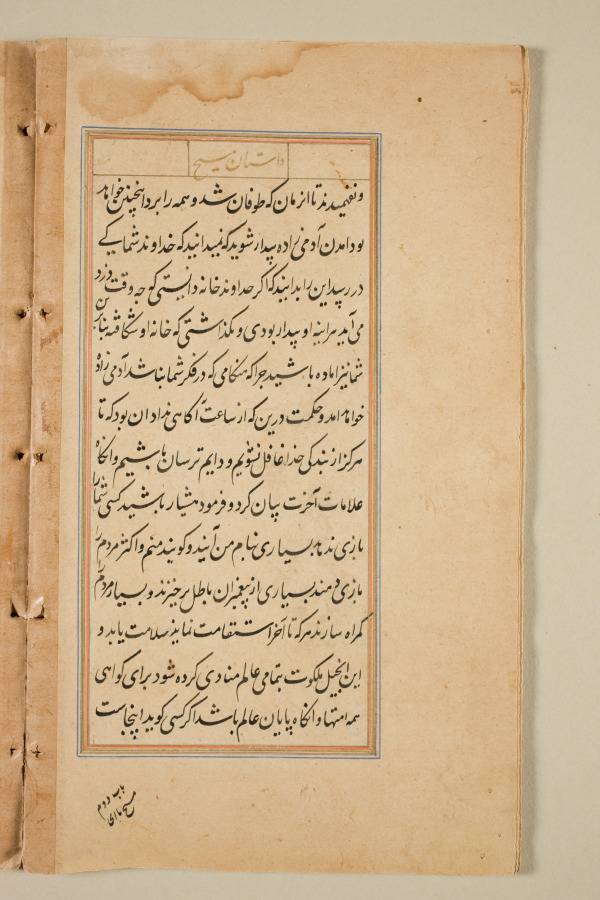 داستان مسیح
و نفهمیدند تا از مان که طوفان شد و همه را برد اینچنین خواهد
بود امدن آدمی زاده بیدار شوید که نمیدانید که خداوند شما کی
در رسید این را بدانید که اکر خداوند خانه دانستی که چه وقت دزد
می آید هر اینه او بیدار بودی و نکذاشتی که خانه او شکافته بنابرین
شما نیز اماده باشید چرا که هنکامی که در فکر شما نباشد آدمی زاده
خواهد امد و حکمت درین که از ساعت آکاهی نداد ان بود که تا
هرکز از بندکی خدا غافل نشویم و دایم ترسان باشیم و انکاه
علامات آخرت بیان کرد و فرمود هشیار باشید کسی شما را
بازی ندهد بسیاری بنام من آیند و کویند منم و اکثر مردم را
بازی دهند بسیاری از پیغمبران باطل برخیزند و بسیار مردم را
کمراه سازند هر که تا آخر استقامت نماید سلامت یابد و
این انجیل ملکوت بتمامی عالم منادی کرده شود برای کواهی
همه امتها و انکاه پایان عالم باشد اکر کسی کوید اینجاست
باب دوم